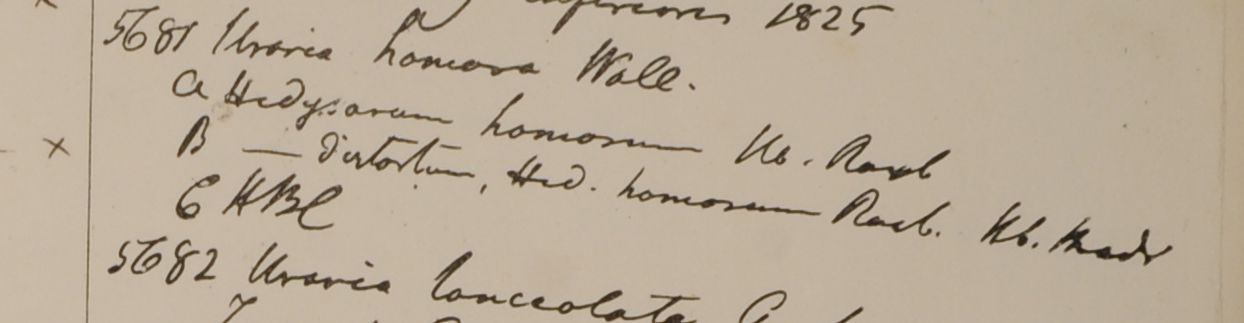 1825
5681 Uraria homosa Wall.
A Hedysarum homosum Hb. Roxb
B — distortum, Hed. homosum Roxb. Hb. Madr
C HBC
5682 Uraria lanceolata